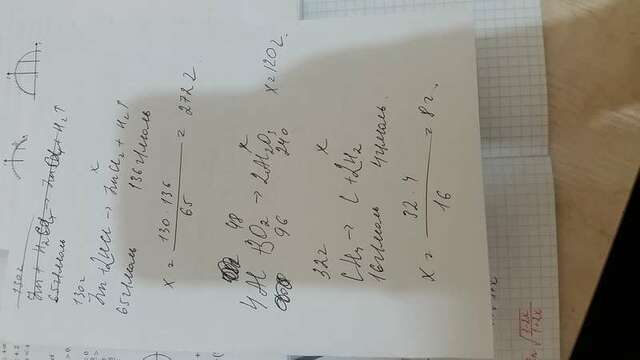 130г
65г/моль
130г x
Zn + 2HCl → ZnCl₂ + H₂↑
65г/моль 136г/моль
x = 130·136 / 65 = 272г
48 x
4Al 3O₂ → 2Al₂O₃
96 240 x=120г.
32г x
CH₄ → C + 2H₂
16г/моль 4г/моль.
x = 32·4 / 16 = 8г.